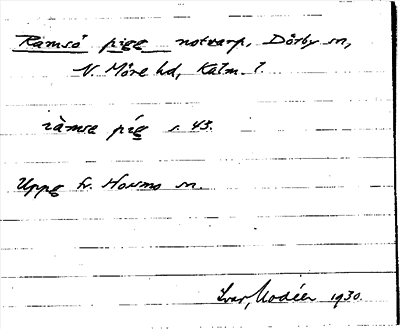 Ramsö pigg notvarp, Dörby sn,
N. Möre hd, Kalm. l.
ràmsə píg s. 43.
Uppg fr. Hossmo sn.
Ivar Modéer 1930.